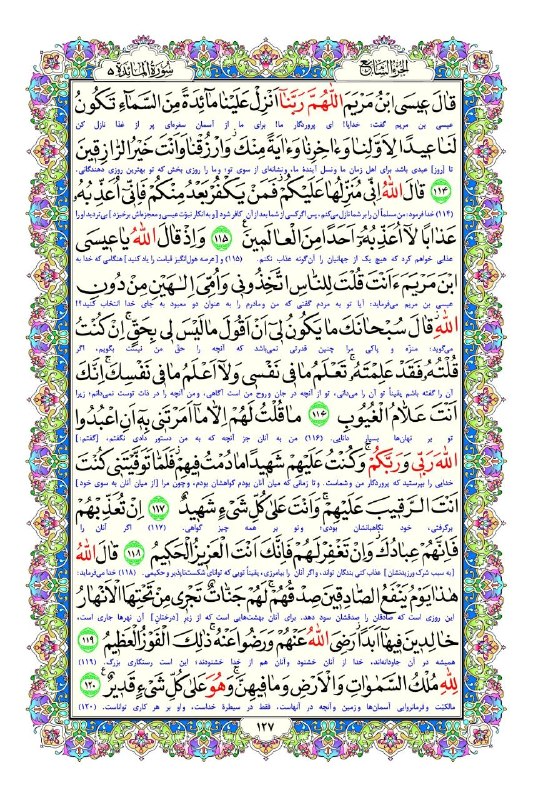 الجزء السابع
سورة المائدة ٥
قالَ عيسَى ابْنُ مَرْيَمَ اللّهُمَّ رَبَّنا اَنْزِلْ عَلَيْنا مائِدَةً مِنَ السَّماءِ تَكُونُ
عیسی بن مریم گفت: خدایا! ای پروردگار ما! برای ما از آسمان سفره‌ای پر از غذا نازل کن
لَنا عيدًا لِاَوَّلِنا وَءاخِرِنا وَءايَةً مِنْكَ وَارْزُقْنا وَاَنْتَ خَيْرُ الرّازِقينَ
تا [روز] عیدی باشد برای اهل زمان ما ونسل آیندهٔ ما، ونشانه‌ای از سوی تو؛ وما را روزی بخش که تو بهترین روزی دهندگانی.
﴿١١٤﴾ قالَ اللهُ اِنّي مُنَزِّلُها عَلَيْكُمْ فَمَنْ يَكْفُرْ بَعْدُ مِنْكُمْ فَاِنّي اُعَذِّبُهُ
(۱۱۴) خدا فرمود: من مسلماً آن را بر شما نازل می‌کنم، پس اگر کسی از شما بعد از آن کافر شود [و به انکار نبوّت عیسی و معجزه‌اش برخیزد] بی‌تردید او را
عَذابًا لا اُعَذِّبُهُ اَحَدًا مِنَ الْعالَمينَ ﴿١١٥﴾ وَاِذْ قالَ اللهُ يا عيسَى
عذابی خواهم کرد که هیچ یک از جهانیان را آن‌گونه عذاب نکنم. (۱۱۵) و [عرصه هول‌انگیز قیامت را یاد کنید] هنگامی که خدا به
ابْنَ مَرْيَمَ ءَاَنْتَ قُلْتَ لِلنّاسِ اتَّخِذُوني وَاُمِّيَ اِلهَيْنِ مِنْ دُونِ
عیسی بن مریم می‌فرماید: آیا تو به مردم گفتی که من ومادرم را به عنوان دو معبود به جای خدا انتخاب کنید؟!
اللهِ قالَ سُبْحانَكَ ما يَكُونُ لي اَنْ اَقُولَ ما لَيْسَ لي بِحَقٍّ اِنْ كُنْتُ
می‌گوید: منزّه و پاکی مرا چنین قدرتی نمی‌باشد که آنچه را حقّ من نیست بگویم؛ اگر
قُلْتُهُ فَقَدْ عَلِمْتَهُ تَعْلَمُ ما في نَفْسي وَلا اَعْلَمُ ما في نَفْسِكَ اِنَّكَ
آن را گفته باشم یقیناً تو آن را می‌دانی، تو از آنچه در جان وروح من است آگاهی، ومن آنچه را در ذات توست نمی‌دانم؛ زیرا
اَنْتَ عَلّامُ الْغُيُوبِ ﴿١١٦﴾ ما قُلْتُ لَهُمْ اِلّا ما اَمَرْتَني بِهِ اَنِ اعْبُدُوا
تو بر نهان‌ها بسیار دانایی. (۱۱۶) من به آنان جز آنچه که به من دستور دادی نگفتم، [گفتم:]
اللهَ رَبّي وَرَبَّكُمْ وَكُنْتُ عَلَيْهِمْ شَهيدًا ما دُمْتُ فيهِمْ فَلَمّا تَوَفَّيْتَني كُنْتَ
خدایی را بپرستید که پروردگار من وشماست. و تا زمانی که میان آنان بودم گواهشان بودم، وچون مرا [از میان آنان به سوی خود]
اَنْتَ الرَّقيبَ عَلَيْهِمْ وَاَنْتَ عَلى كُلِّ شَيْءٍ شَهيدٌ ﴿١١٧﴾ اِنْ تُعَذِّبْهُمْ
برگرفتی، خود نگاهبانشان بودی؛ وتو بر همه چیز گواهی. (۱۱۷) اگر آنان را
فَاِنَّهُمْ عِبادُكَ وَاِنْ تَغْفِرْ لَهُمْ فَاِنَّكَ اَنْتَ الْعَزيزُ الْحَكيمُ ﴿١١٨﴾ قالَ اللهُ
[به سبب شرک ورزیدنشان] عذاب کنی بندگان تواند، و اگر آنان را بیامرزی، یقیناً تویی که توانای شکست‌ناپذیر و حکیمی. (۱۱۸) خدا می‌فرماید:
هذا يَوْمُ يَنْفَعُ الصّادِقينَ صِدْقُهُمْ لَهُمْ جَنّاتٌ تَجْري مِنْ تَحْتِهَا الْاَنْهارُ
این روزی است که صادقان را صدقشان سود دهد. برای آنان بهشت‌هایی است که از زیرِ [درختانِ] آن نهرها جاری است،
خالِدينَ فيها اَبَدًا رَضِيَ اللهُ عَنْهُمْ وَرَضُوا عَنْهُ ذلِكَ الْفَوْزُ الْعَظيمُ ﴿١١٩﴾
همیشه در آن جاودانه‌اند، خدا از آنان خشنود وآنان هم از خدا خشنودند؛ این است رستگاری بزرگ. (۱۱۹)
لِلّهِ مُلْكُ السَّمواتِ وَالْاَرْضِ وَما فيهِنَّ وَهُوَ عَلى كُلِّ شَيْءٍ قَديرٌ ﴿١٢٠﴾
مالکیّت و فرمانروایی آسمان‌ها وزمین و آنچه در آنهاست، فقط در سیطرهٔ خداست، و او بر هر کاری تواناست. (۱۲۰)
١٢٧